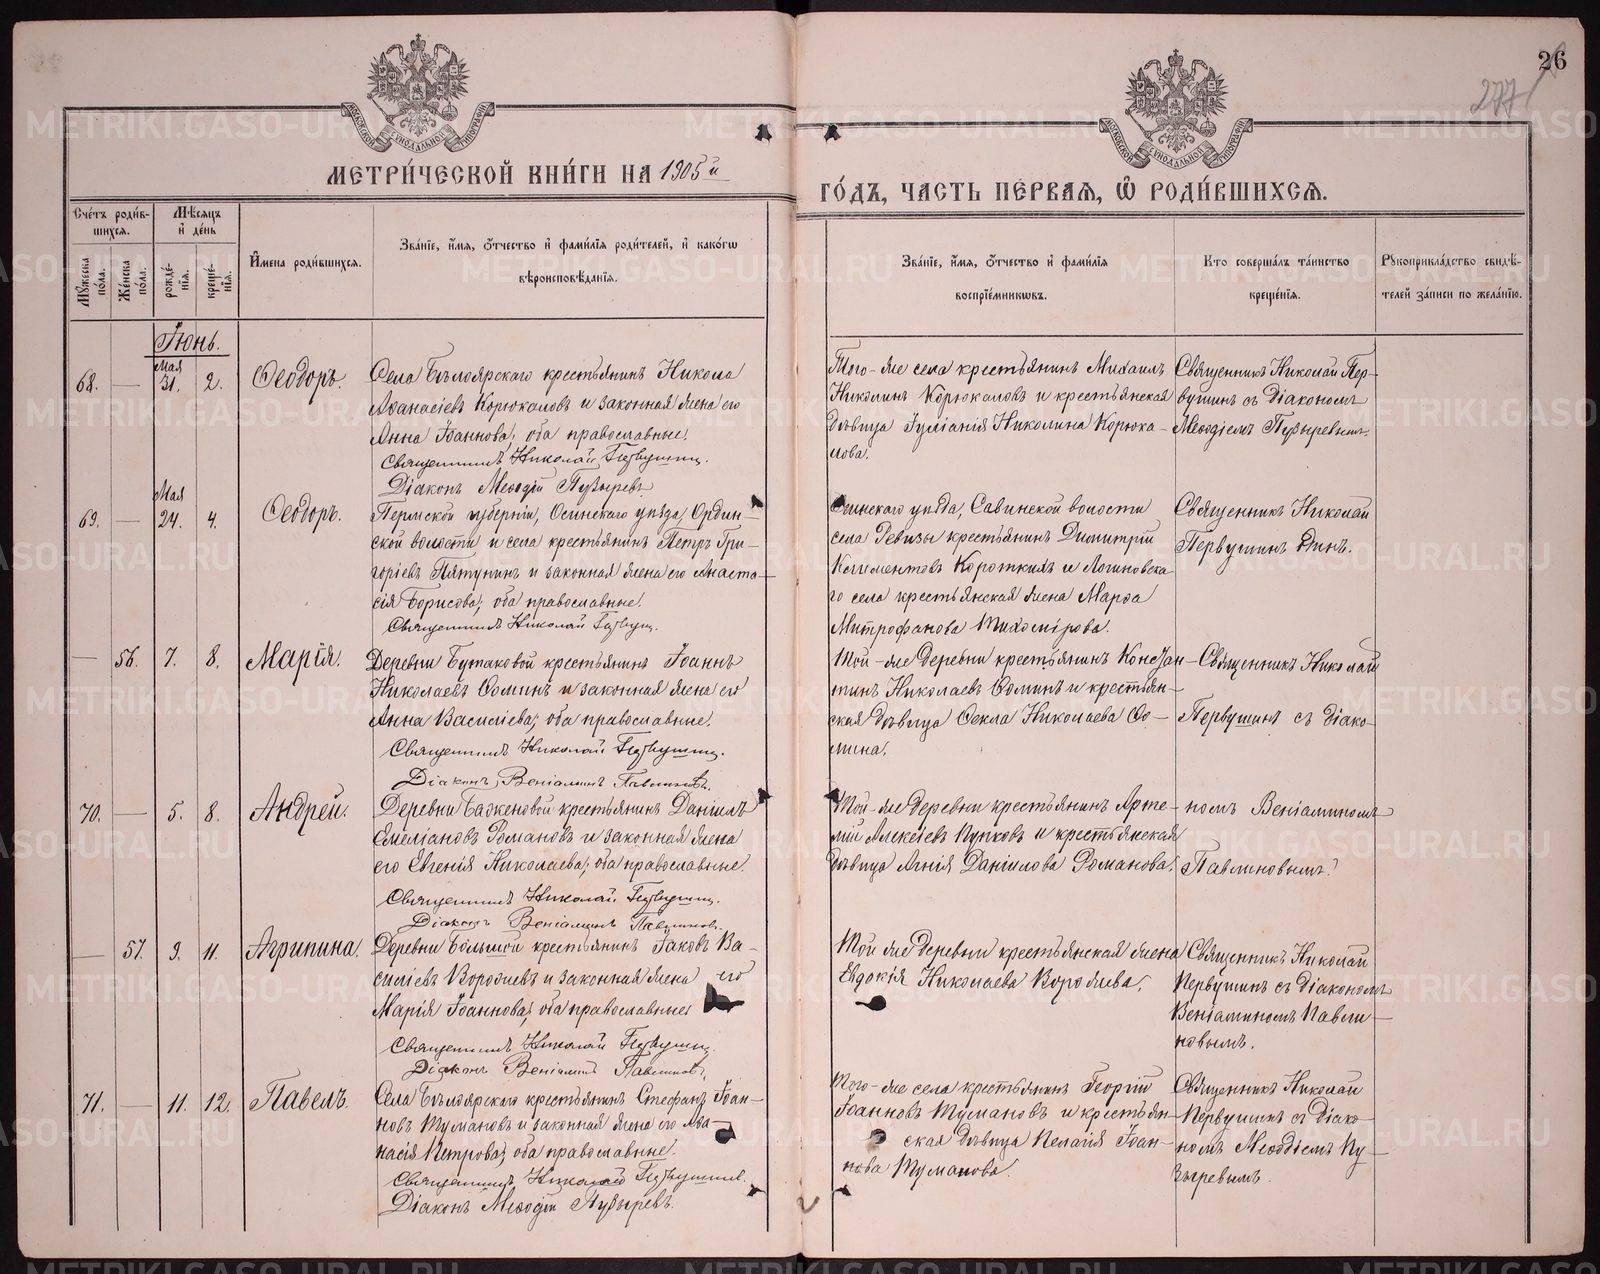 26
277
МЕТРИ́ЧЕСКОЙ КНИ́ГИ НА 1905 й
ГО́ДЪ, ЧА́СТЬ ПЕ́РВАЯ, Ѡ҆ РОДИ́ВШИХСЯ.
Сче́тъ роди́в-
шихся.
Мѣ́сяцъ
и҆ де́нь
Мꙋ́жеска по́ла.
Же́нска по́ла.
рожде́-
нїя.
креще́-
нїя.
И҆мена роди́вшихся.
Зва́нїе, и҆́мя, ѻ҆́тчество и҆ фами́лїя роди́телей, и҆ како́гѡ
вѣроисповѣ́данїя.
Зва́нїе, и҆́мя, ѻ҆́тчество и҆ фами́лїя
воспрїе́мникѡвъ.
Кто соверша́лъ та́инство
креще́нїя.
Рꙋкоприкла́дство свидѣ́-
телей за́писи по жела́нїю.
Іюнь.
68. — Мая 31. 2. Ѳеодоръ.
Села Бѣлоярскаго крестьянинъ Никола
Аѳанасіевъ Корюкаловъ и законная жена его
Анна Іоаннова; оба православные.
Священникъ Николай Первушин.
Діаконъ Меѳодій Пузыревъ
Того-же села крестьянинъ Михаилъ
Николинъ Корюкаловъ и крестьянская
дѣвица Іуліанія Николина Корюка-
лова.
Священникъ Николай Пер-
вушинъ съ діакономъ
Меѳодіемъ Пузыревым.
69. — Мая 24. 4. Ѳеодоръ.
Пермской губерніи, Осинскаго уѣзда, Ордин-
ской волости и села крестьянинъ Петръ Гри-
горіевъ Пятунинъ и законная жена его Анаста-
сія Борисова; оба православные.
Священникъ Николай Первуш.
Осинскаго уѣзда, Савинской волости
села Ревизы крестьянинъ Димитрій
Климентовъ Короткихъ и Логиновска
го села крестьянская жена Марѳа
Митрофанова Тихомірова.
Священникъ Николай
Первушинъ одинъ.
— 56. 7. 8. Марія.
Деревни Бутаковой крестьянинъ Іоаннъ
Николаевъ Ѳоминъ и законная жена его
Анна Василіева; оба православные.
Священникъ Николай Первушин.
Діаконъ Веніаминъ Павлиновъ.
Той-же деревни крестьянинъ Констан-
тинъ Николаевъ Ѳоминъ и крестьян-
ская дѣвица Ѳекла Николаева Ѳо-
мина.
Священникъ Николай
Первушинъ съ діако-
70. — 5. 8. Андрей.
Деревни Баженовой крестьянинъ Даніилъ
Емеліановъ Романовъ и законная жена
его Евгенія Николаева; оба православные.
Священникъ Николай Первушин.
Діаконъ Веніаминъ Павлинов.
Той-же деревни крестьянинъ Арте-
мій Алексіевъ Пупковъ и крестьянская
дѣвица Агнія Даніилова Романова.
номъ Веніаминомъ
Павлиновымъ.
— 57. 9. 11. Агрипина.
Деревни Большой крестьянинъ Іаковъ Ва-
силіевъ Воробіевъ и законная жена его
Марія Іоаннова; оба православные
Священникъ Николай Первушин.
Діаконъ Веніаминъ Павлиновъ.
Той же деревни крестьянская жена
Евдокія Николаева Воробіева.
Священникъ Николай
Первушинъ съ діакономъ
Веніаминомъ Павли-
новымъ.
71. — 11. 12. Павелъ.
Села Бѣлоярскаго крестьянинъ Стефанъ Іоан-
новъ Тумановъ и законная жена его Аѳа-
насія Петрова; оба православные.
Священникъ Николай Первушинъ.
Діаконъ Меѳодій Пузыревъ.
Того-же села крестьянинъ Георгій
Іоанновъ Тумановъ и крестьян
ская дѣвица Пелагія Іоан-
нова Туманова.
Священникъ Николай
Первушинъ съ діако-
номъ Меѳодіемъ Пу-
зыревымъ.
METRIKI.GASO-URAL.RU